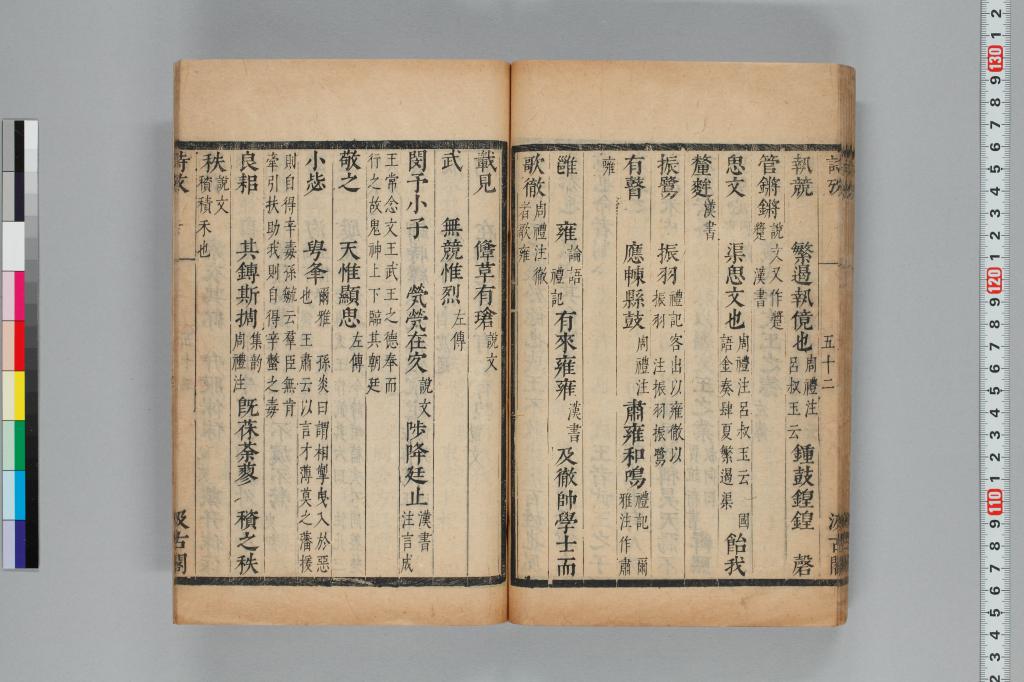 執競 繁遏執傹也 周禮注呂叔玉云 鍾鼓鍠鍠 磬
管鏘鏘 說文又作䥝䥝 漢書
思文 渠思文也 周禮注呂叔玉云國語金奏肆夏繁遏渠 飴我
釐麰 漢書
振鷺 振羽 禮記客出以雍徹以振羽注振羽振鷺
有瞽 應朄縣鼓 周禮注 肅雍和鳴 禮記爾雅注作肅
雝
雝 雍 論語禮記 有來雍雍 漢書 及徹帥學士而
歌徹 周禮注徹者歌雍
載見 鞗革有瑲 說文
武 無競惟烈 左傳
閔予小子 煢煢在㝌 說文 陟降廷止 漢書注言成
王常念文王武王之德奉而行之故鬼神上下臨其朝廷
敬之 天惟顯思 左傳
小毖 甹夆 爾雅孫炎曰謂相掣曳入於惡也王肅云以言才薄莫之藩援
則自得辛毒孫毓云羣臣無肯牽引扶助我則自得辛螫之毒
良耜 其鎛斯搁 集韵周禮注 旣茠荼蓼 𥢒之秩
秩 說文𥢒積禾也
五十二
汲古閣
詩攷
汲古閣